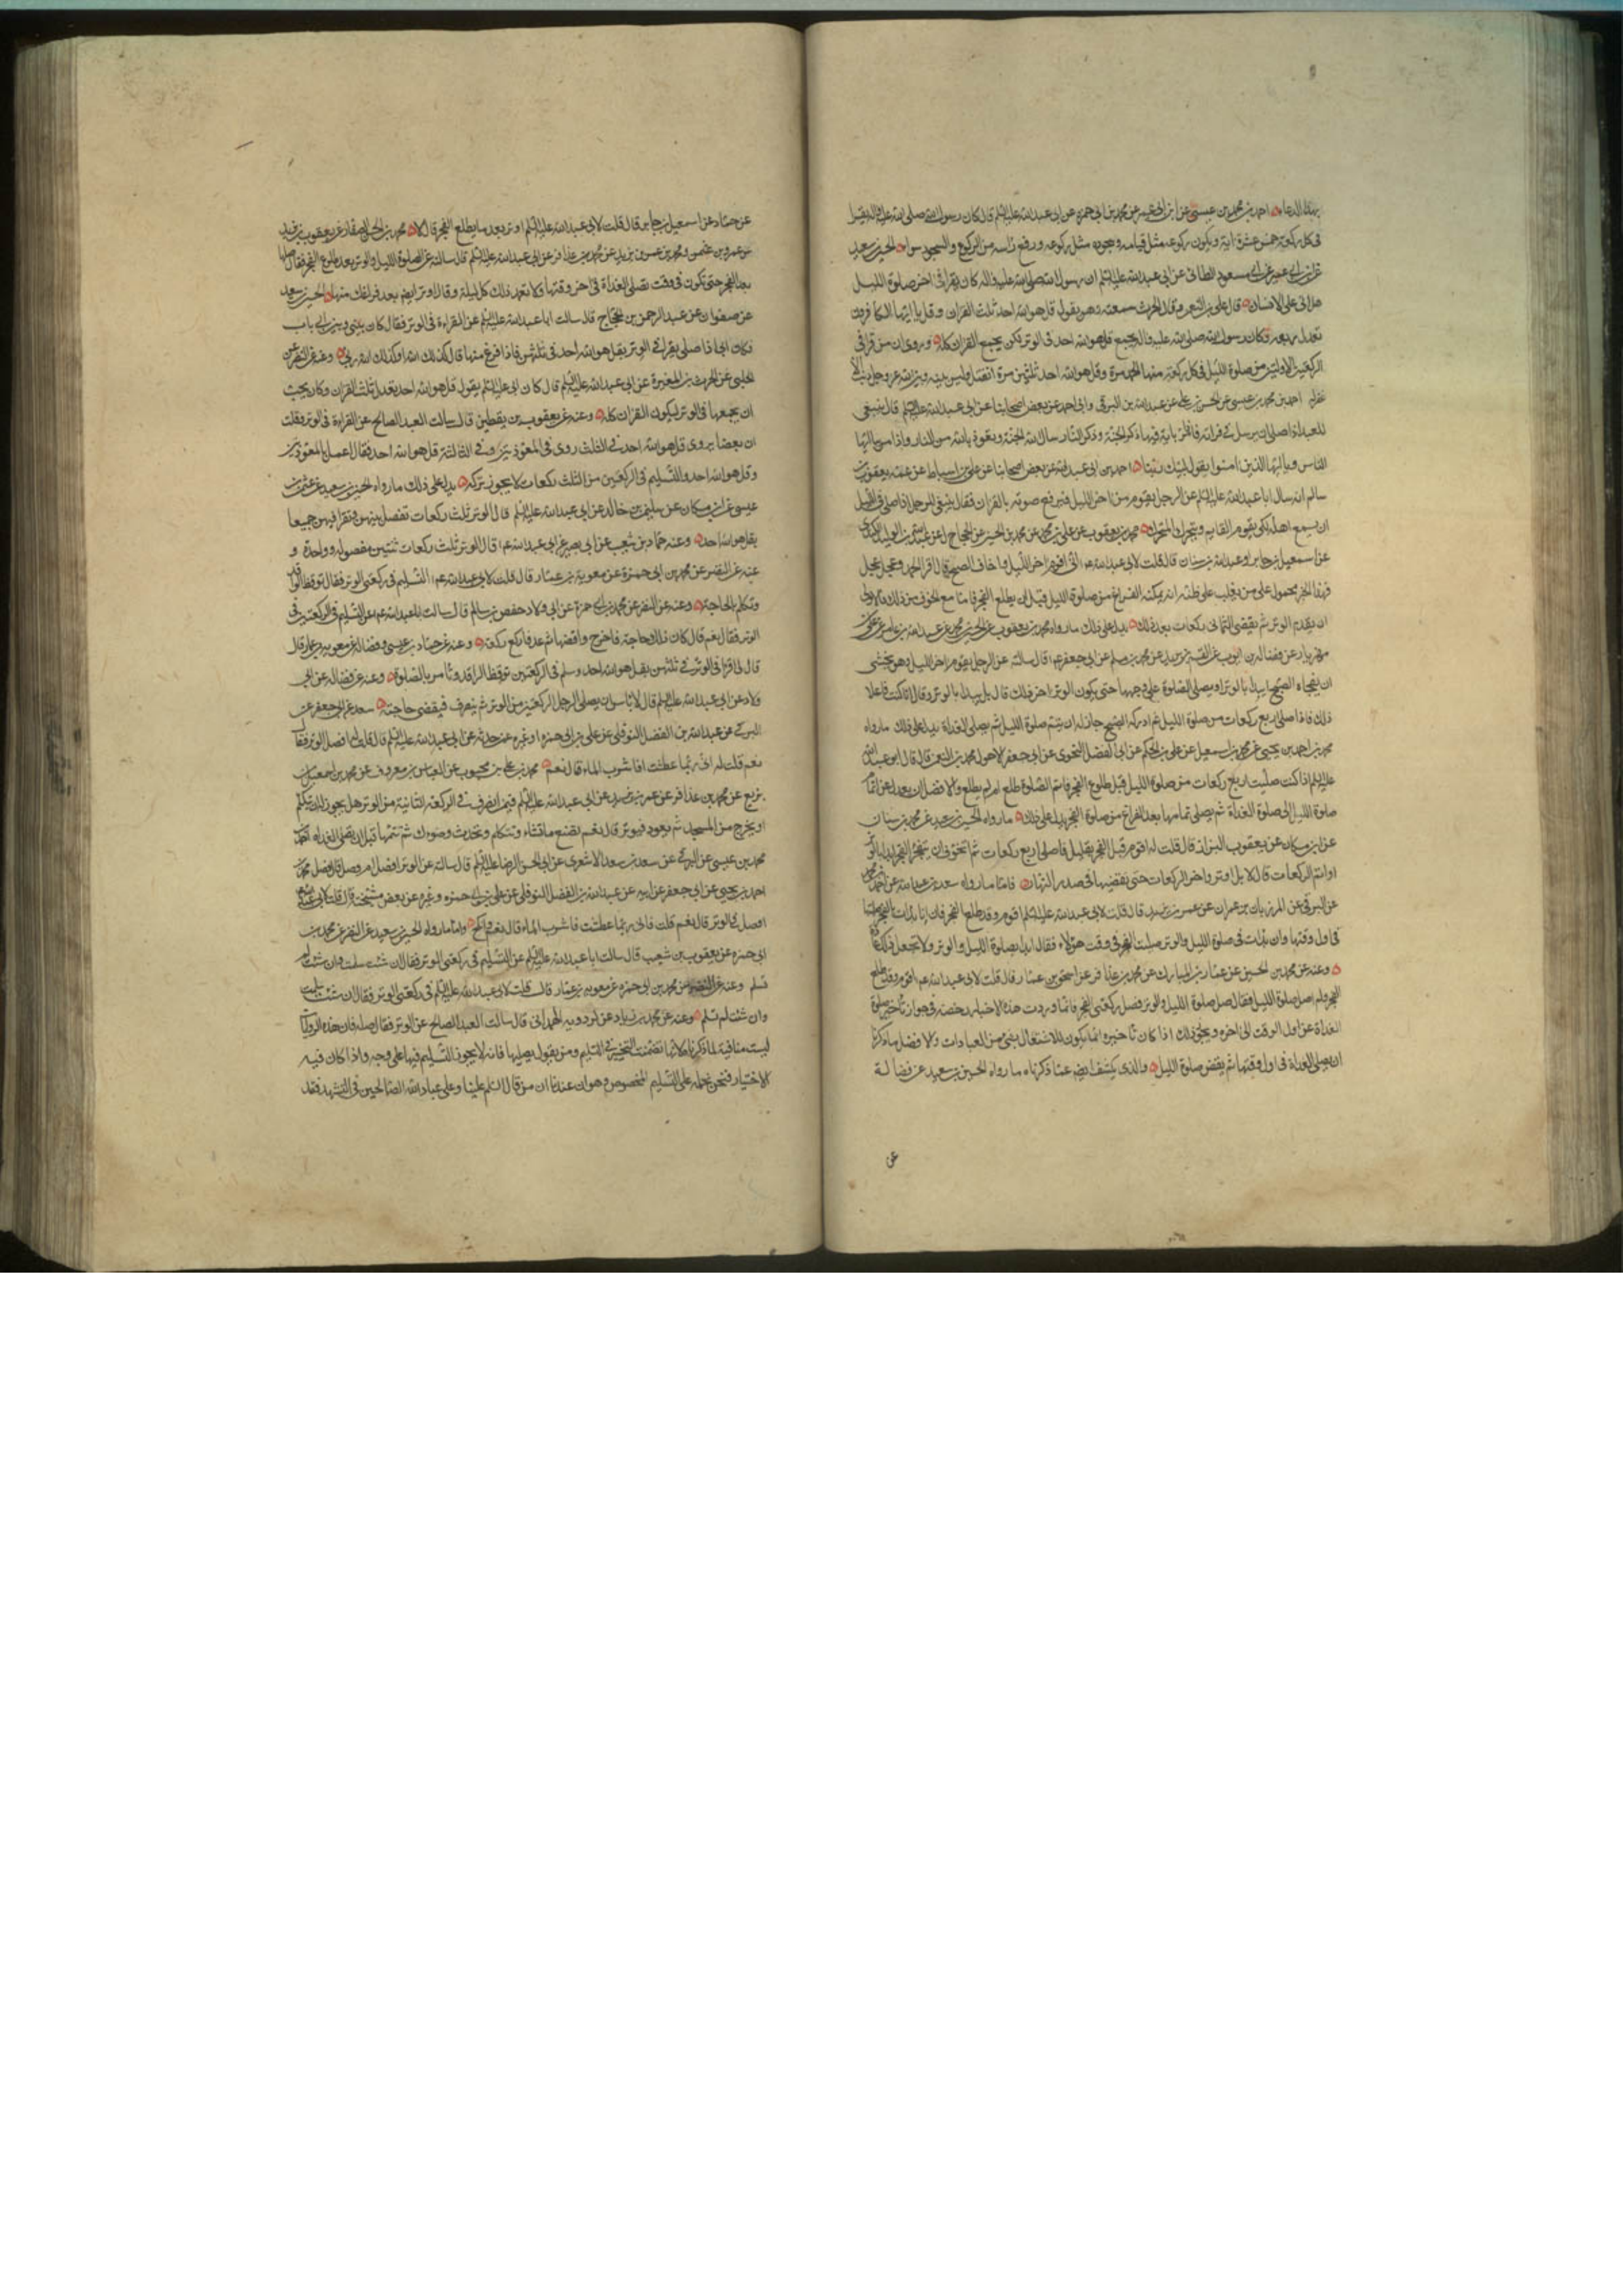 بهذا الدعاء احمد بن محمد بن عيسى عن ابن ابى عمير عن محمد بن ابى حمزه عن ابى عبد الله عليه السلم قال كان رسول الله صلى الله عليه واله يقرا
فى كل ركعة خمس عشرة اية ويكون ركوعه مثل قيامه وسجوده مثل ركوعه ورفع راسه من الركوع والسجود سواء الحسين بن سعيد
عن ابن ابى عمير عن ابى مسعود الطائى عن ابى عبد الله عليه السلم ان رسول الله صلى الله عليه واله كان يقرا فى اخر صلوة الليل
هل اتى على الانسان قال على بن النعمن وقال الحرث سمعته وهو يقول قل هو الله احد ثلث القران وقل يا ايها الكافرون
تعدل ربعه وكان رسول الله صلى الله عليه واله يجمع قل هو الله احد فى الوتر لكى يجمع القران كله وروى ان من قرا فى
الركعتين الاوليين من صلوة الليل فى كل ركعة منها الحمد مرة وقل هو الله احد ثلثين مرة انفتل وليس بينه وبين الله عز وجل ذنب الا
غفر له احمد بن محمد بن عيسى عن الحسن بن على عن عبد الله بن البرقى وابى احمد عن بعض اصحابنا عن ابى عبد الله عليه السلم قال ينبغى
للعبد اذا صلى ان يرسل فى قراته فاذا مر باية فيها ذكر الجنة وذكر النار سال الله الجنة وتعوذ بالله من النار واذا مر بيا ايها
الناس ويا ايها الذين امنوا يقول لبيك ربنا احمد بن ابى عبد الله عن بعض اصحابنا عن على بن اسباط عن عمه يعقوب بن
سالم انه سال ابا عبد الله عليه السلم عن الرجل يقوم من اخر الليل فيرفع صوته بالقران فقال ينبغى للرجل اذا صلى فى الليل
ان يسمع اهله لكى يقوم القايم ويتحرك المتحرك محمد بن يعقوب عن على بن محمد عن محمد بن الحسين عن الحجال عن عبد الله بن الوليد الكندى
عن اسمعيل بن جابر او عبد الله بن سنان قال قلت لابى عبد الله عم انى اقوم اخر الليل واخاف الصبح قال اقرا الحمد واعجل اعجل
فهذا الخبر محمول على من يغلب على ظنه انه يمكنه الفراغ من صلوة الليل قبل ان يطلع الفجر فاما مع الخوف من ذلك فالاولى
ان يقدم الوتر ثم يقضى الثمانى ركعات بعد ذلك يدل على ذلك ما رواه محمد بن يعقوب عن الحسين بن محمد عن عبد الله بن عامر عن على بن
مهزيار عن فضالة بن ايوب عن القسم بن بريد عن محمد بن مسلم عن ابى جعفر عم قال سالته عن الرجل يقوم من اخر الليل وهو يخشى
ان يفجاه الصبح ايبدا بالوتر او يصلى الصلوة على وجهها حتى يكون الوتر اخر ذلك قال بل يبدا بالوتر وقال انا كنت فاعلا
ذلك فاذا صلى اربع ركعات من صلوة الليل ثم ادركه الصبح جاز له ان يتم صلوة الليل ثم يصلى الغداة يدل على ذلك ما رواه
محمد بن احمد بن يحيى عن محمد بن اسمعيل عن على بن الحكم عن ابى الفضل النحوى عن ابى جعفر الاحول محمد بن النعمن قال قال ابو عبد الله
عليه السلم اذا كنت صليت اربع ركعات من صلوة الليل قبل طلوع الفجر فاتم الصلوة طلع ام لم يطلع والافضل ان يعدل عن اتمام
صلوة الليل الى صلوة الغداة ثم يصلى تمامها بعد الفراغ من صلوة الفجر يدل على ذلك ما رواه الحسين بن سعيد عن محمد بن سنان
عن ابن مسكان عن يعقوب البزاز قال قلت له اقوم قبل الفجر بقليل فاصلى اربع ركعات ثم اتخوف ان ينفجر الفجر ابدا بالوتر
او اتم الركعات قال لا بل اوتر واخر الركعات حتى تقضيها فى صدر النهار فاما ما رواه سعد بن عبد الله عن احمد بن محمد
عن البرقى عن المرزبان بن عمران عن عمر بن يزيد قال قلت لابى عبد الله عليه السلم اقوم وقد طلع الفجر فان انا بدات بالفجر صليتها
فى اول وقتها وان بدات فى صلوة الليل والوتر صليت الفجر فى وقت هؤلاء فقال ابدا بصلوة الليل والوتر ولا تجعل ذلك عادة
وعنه عن محمد بن الحسين عن عمار بن المبارك عن محمد بن عذافر عن اسحق بن عمار قال قلت لابى عبد الله عم اقوم وقد طلع
الفجر ولم اصل صلوة الليل فقال صل صلوة الليل والوتر وصل ركعتى الفجر فانما وردت هذه الاخبار رخصة فى جواز تاخير صلوة
الغداة عن اول الوقت الى اخره ويجوز ذلك اذا كان تاخيره انما يكون للاشتغال بشئ من العبادات والافضل ما ذكرنا
ان يصلى الغداة فى اول وقتها ثم يقضى صلوة الليل والذى يكشف ايضا عما ذكرناه ما رواه الحسين بن سعيد عن فضالة
عن
عن حماد عن اسمعيل بن جابر قال قلت لابى عبد الله عليه السلم اوتر بعد ما يطلع الفجر قال لا محمد بن الحسن الصفار عن يعقوب بن يزيد
عن عمرو بن عثمن ومحمد بن عمر بن يزيد عن محمد بن عذافر عن ابى عبد الله عليه السلم قال سالته عن الصلوة الليل والوتر بعد طلوع الفجر فقال صلها
بعد الفجر حتى تكون فى وقت تصلى الغداة فى اخر وقتها ولا تعمد ذلك كل ليلة وقال اوتر ايضا بعد فراغك منها الحسين بن سعيد
عن صفوان عن عبد الرحمن بن الحجاج قال سالت ابا عبد الله عليه السلم عن القراءة فى الوتر فقال كان بينى وبين ابى باب
فكان ابى اذا صلى يقرا فى الوتر بقل هو الله احد فى ثلثهن فاذا فرغ منها قال كذلك الله او كذلك الله ربى وعنه عن النضر عن
الحلبى عن الحرث بن المغيرة عن ابى عبد الله عليه السلم قال كان ابى عليه السلم يقول قل هو الله احد يعدل ثلث القران وكان يحب
ان يجمعها فى الوتر ليكون القران كله وعنه عن يعقوب بن يقطين قال سالت العبد الصالح عن القراءة فى الوتر وقلت
ان بعضا يروى قل هو الله احد فى الثلث وروى فى المعوذتين وفى الثالثة قل هو الله احد فقال اعمل بالمعوذتين
وقل هو الله احد والتسليم فى الركعتين من الثلث ركعات لا يجوز تركه يدل على ذلك ما رواه الحسين بن سعيد عن عثمن بن
عيسى عن ابن مسكان عن سليمن بن خالد عن ابى عبد الله عليه السلم قال الوتر ثلث ركعات تفصل بينهن وتقرا فيهن جميعا
بقل هو الله احد وعنه عن حماد بن شعيب عن ابى بصير عن ابى عبد الله عم قال الوتر ثلث ركعات ثنتين مفصوله وواحدة و
عنه عن النضر عن محمد بن ابى حمزة عن معوية بن عمار قال قلت لابى عبد الله عم التسليم فى ركعتى الوتر فقال توقظ الراقد
وتكلم بالحاجة وعنه عن النضر عن محمد بن ابى حمزة عن ابى ولاد حفص بن سالم قال سالت ابا عبد الله عم عن التسليم فى الركعتين فى
الوتر فقال نعم قال كان لك حاجة فاخرج واقضها ثم عد فاركع ركعة وعنه عن حماد بن عيسى وفضالة عن معوية بن عمار قال
قال لى اقرا فى الوتر فى ثلثهن بقل هو الله احد وسلم فى الركعتين توقظ الراقد وتامر بالصلوة وعنه عن فضالة عن ابى
ولاد عن ابى عبد الله عليه السلم قال لا باس ان يصلى الرجل الركعتين من الوتر ثم ينصرف فيقضى حاجته سعد عن ابى جعفر عن
البرقى عن عبد الله بن الفضل النوفلى عن على بن ابى حمزه او غيره عمن حدثه عن ابى عبد الله عليه السلم قال قلت له افصل الوتر قال
نعم قلت له انى ربما عطشت افاشرب الماء قال نعم محمد بن على بن محبوب عن العباس بن معروف عن محمد بن اسمعيل بن
بزيع عن محمد بن عذافر عن عمر بن يزيد عن ابى عبد الله عليه السلم فيمن انصرف فى الركعة الثانية من الوتر هل يجوز له ان يتكلم
او يخرج من المسجد ثم يعود فيوتر قال نعم تصنع ما تشاء وتتكلم وتحدث وضوءك ثم تتمها قبل ان تصلى الغداه احمد بن
محمد بن عيسى عن البرقى عن سعد بن سعد الاشعرى عن ابى الحسن الرضا عليه السلم قال سالته عن الوتر افصل ام وصل قال فصل محمد بن
احمد بن يحيى عن ابى جعفر عن ابيه عن عبد الله بن الفضل النوفلى عن على بن ابى حمزه وغيره عن بعض مشيخته قال قلت لابى عبد الله
افصل فى الوتر قال نعم قلت فانى ربما عطشت فاشرب الماء قال نعم وانكح واما ما رواه الحسين بن سعيد عن النضر عن محمد بن
ابى حمزه عن يعقوب بن شعيب قال سالت ابا عبد الله عليه السلم عن التسليم فى ركعتى الوتر فقال ان شئت سلمت وان شئت لم
تسلم وعنه عن النضر عن محمد بن ابى حمزه عن معويه بن عمار قال قلت لابى عبد الله عليه السلم فى ركعتى الوتر فقال ان شئت سلمت
وان شئت لم تسلم وعنه عن محمد بن زياد عن كردويه الهمدانى قال سالت العبد الصالح عن الوتر فقال صله فان هذه الروايات
ليست منافية لما ذكرناه لانها تضمنت التخيير فى التسليم ومن يقول بصلتها فانه لا يجوز التسليم فيها على وجه واذا كان فيه
الاختيار فنحن نحمله على التسليم المخصوص وهو ان عندنا ان من قال السلم علينا وعلى عباد الله الصالحين فى التشهد فقد